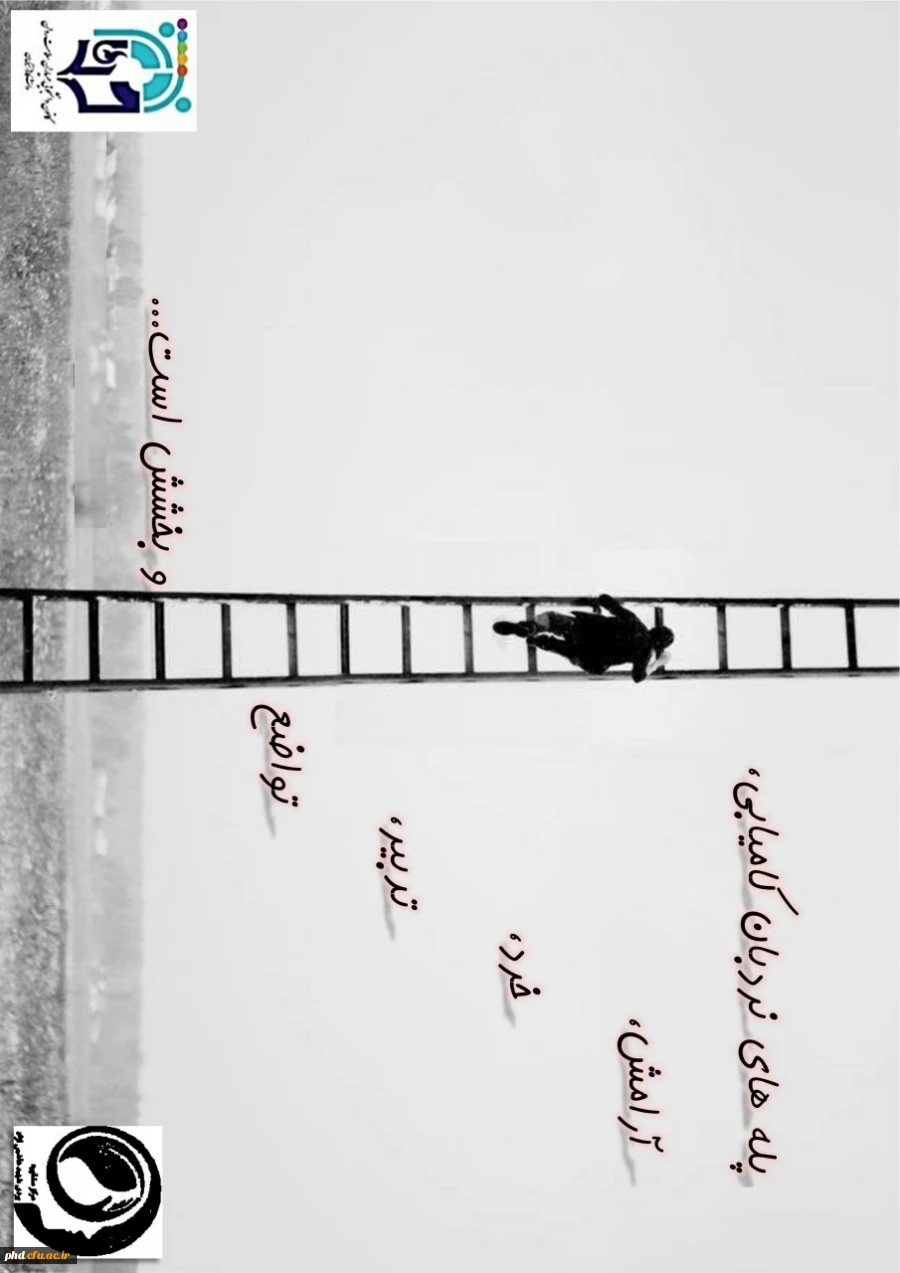 پله های نردبان کامیابی،
آرامش،
خرد،
تدبیر،
تواضع
و بخشش است...
phd.cfu.ac.ir